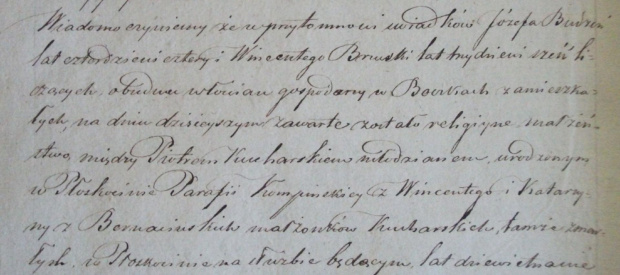 Wiadomo czyniemy że w przytomności świadków Józefa
lat czterdzieści cztery i Wincentego lat trzydzieści sześć li-
czących, obudwu włościan gospodarzy w zamieszka-
łych, na dniu dzisieyszym zawarte zostało religiyne małżeń-
stwo, między Piotrem Kucharskim młodzianem, urodzonym
w Płoskocinie Parafii Kompinskiey z Wincentego i Katarzy-
ny z małżonków Kucharskich, tamże zmar-
łych, w Płoskocinie na służbie będącym, lat dziewiętnaście